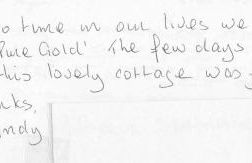 o time in our lives we
Pure Gold' The few days
this lovely cottage was
nks,
ndy